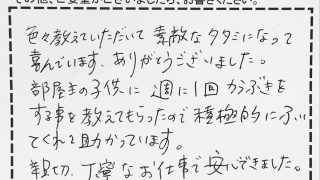 その他、ご要望がございましたら、お書きください。
色々教えていただいて 素敵なタタミになって
喜んでいます。ありがとうございました。
部屋主の子供に 週に1回 からぶきを
する事を教えてもらったので積極的にふい
てくれて助かっています。
親切、丁寧なお仕事で安心できました。